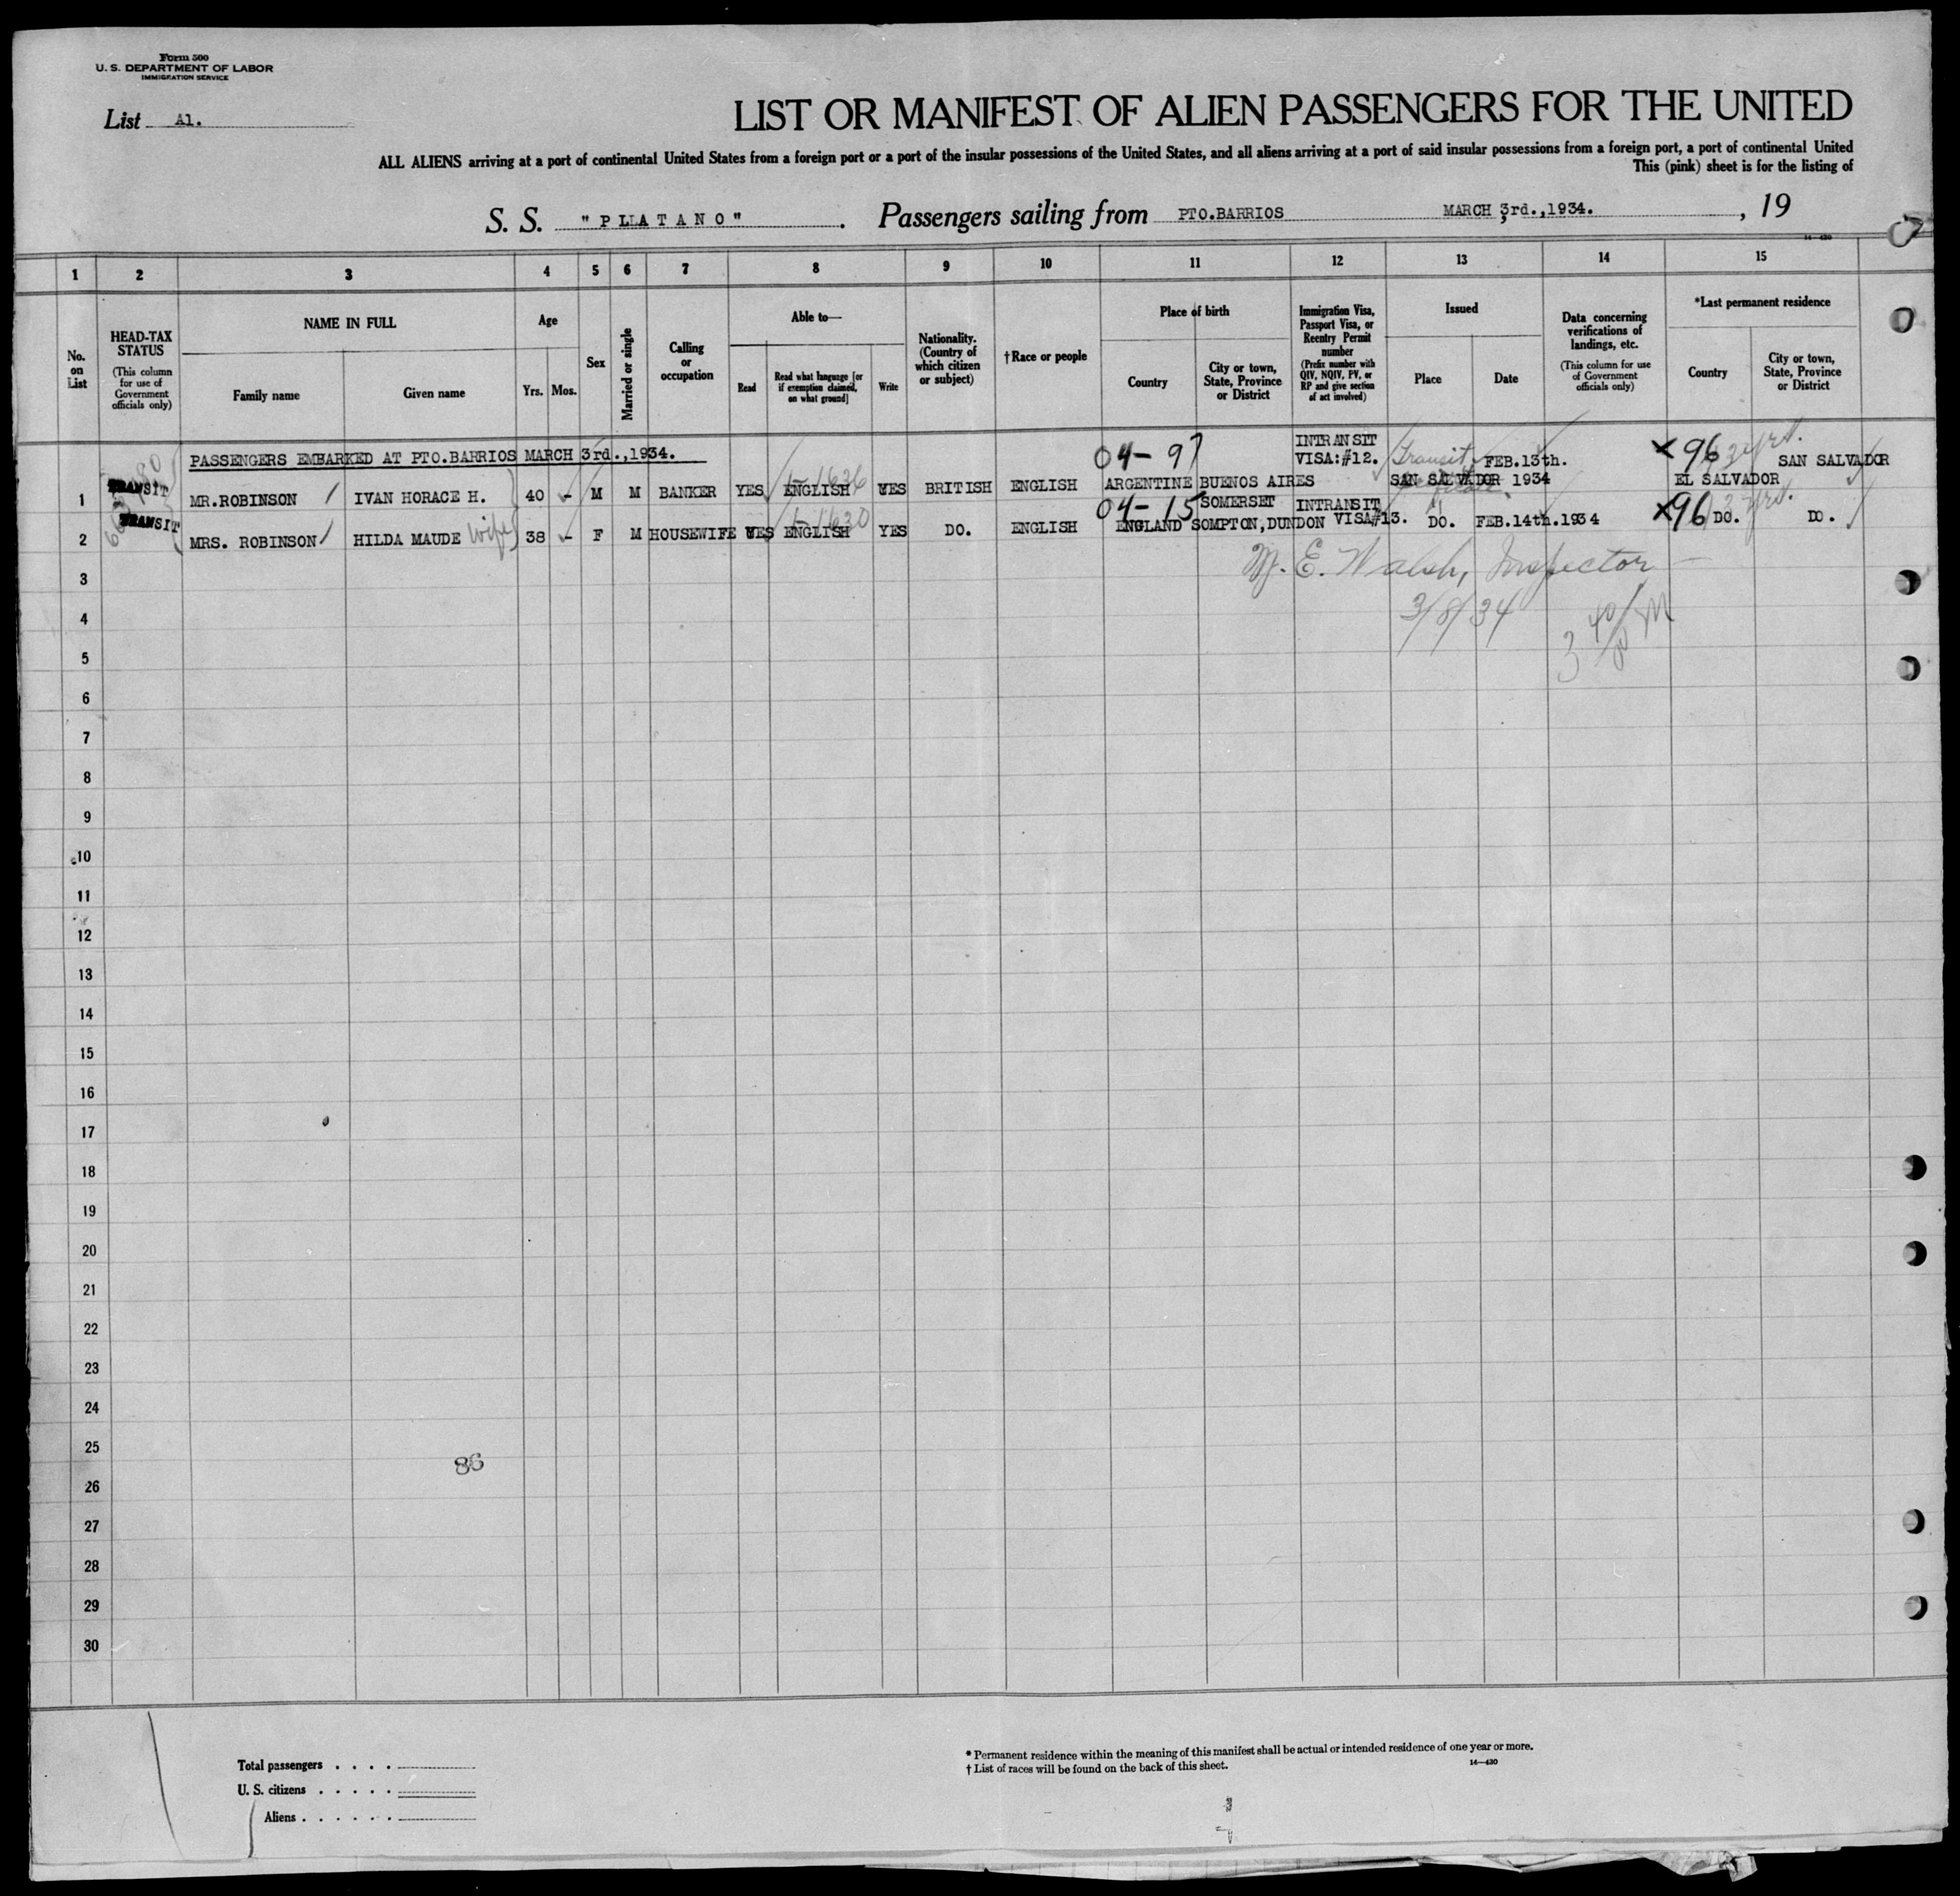 Form 500
U. S. DEPARTMENT OF LABOR
IMMIGRATION SERVICE
List A1.
LIST OR MANIFEST OF ALIEN PASSENGERS FOR THE UNITED
ALL ALIENS arriving at a port of continental United States from a foreign port or a port of the insular possessions of the United States, and all aliens arriving at a port of said insular possessions from a foreign port, a port of continental United
This (pink) sheet is for the listing of
S. S. "PLLATANO". Passengers sailing from PTO.BARRIOS MARCH 3rd.,1934. , 19
14—430
1 2 3 4 5 6 7 8 9 10 11 12 13 14 15
No. on List
HEAD-TAX STATUS
(This column for use of Government officials only)
NAME IN FULL
Family name
Given name
Age
Yrs. Mos.
Sex
Married or single
Calling or occupation
Able to—
Read
Read what language [or if exemption claimed, on what ground]
Write
Nationality. (Country of which citizen or subject)
†Race or people
Place of birth
Country
City or town, State, Province or District
Immigration Visa, Passport Visa, or Reentry Permit number
(Prefix number with QIV, NQIV, PV, or RP and give section of act involved)
Issued
Place
Date
Data concerning verifications of landings, etc.
(This column for use of Government officials only)
*Last permanent residence
Country
City or town, State, Province or District
PASSENGERS EMBARKED AT PTO.BARRIOS MARCH 3rd.,1934.
04-97 INTRANSIT VISA:#12. Transit FEB.13th. x96 SAN SALVADOR
1 TRANSIT MR.ROBINSON IVAN HORACE H. 40 - M M BANKER YES ENGLISH YES BRITISH ENGLISH ARGENTINE BUENOS AIRES SAN SALVADOR 1934 EL SALVADOR
04-15 SOMERSET INTRANSIT x96
2 TRANSIT MRS. ROBINSON HILDA MAUDE wife 38 - F M HOUSEWIFE YES ENGLISH YES DO. ENGLISH ENGLAND SOMPTON,DUNDON VISA#13. DO. FEB.14th.1934 DO. DO.
M. E. Walsh, Inspector
3
3/8/34
4
5
6
7
8
9
10
11
12
13
14
15
16
17
18
19
20
21
22
23
24
25
86
26
27
28
29
30
Total passengers . . . .
U. S. citizens . . . . .
Aliens . . . . . .
* Permanent residence within the meaning of this manifest shall be actual or intended residence of one year or more.
† List of races will be found on the back of this sheet.
14—430